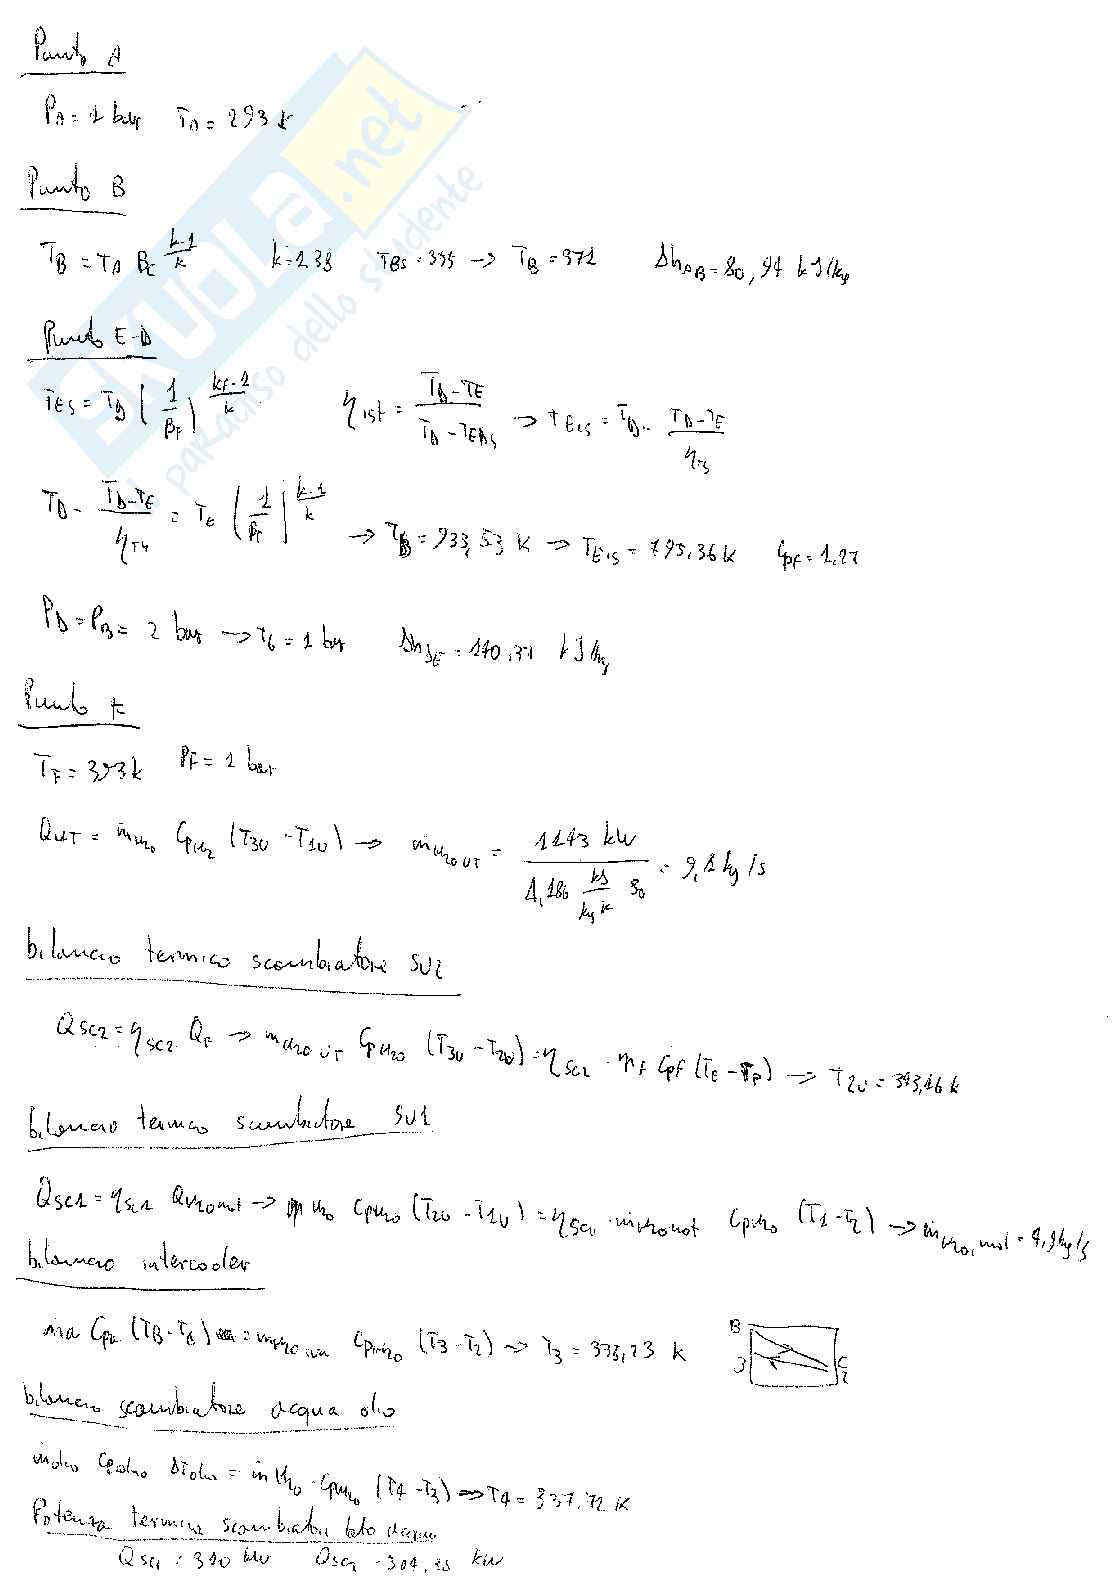 Punto A
PA = 1 bar TA = 293 K
Punto B
TB = TA βc^(k-1/k) k = 1.38 TBs = 355 → TB = 371 ΔhAB = 80,94 kJ/kg
Punto E-D
TES = TD (1/βF)^(kF-1/k) ηist = TD-TE / TD-TEDs → TEis = TD - TD-TE / ηTs
TD - TD-TE / ηTu = TE (1/βF)^(k-1/k) → TD = 933,53 K → TEis = 795,36 K CpF = 1,27
PD = PB = 2 bar → = 1 bar ΔhDE = 140,31 kJ/kg
Punto F
TF = 393 K PF = 1 bar
QUT = ṁH2O CpH2O (T3U - T1U) → ṁH2O UT = 1143 kW / 4,186 kJ/kg K 30 = 9,1 kg/s
bilancio termico scambiatore SU2
QSC2 = ηSC2 QF → ṁH2O UT CpH2O (T3U - T2U) = ηSC2 · ṁF CpF (TE - TF) → T2U = 343,16 K
bilancio termico scambiatore SU1
QSC1 = ηSC1 QH2O mot → ṁH2O CpH2O (T2U - T1U) = ηSC1 · ṁH2O mot CpH2O (T1 - T2) → ṁH2O, mot = 4,9 kg/s
bilancio intercooler
ṁa Cpa (TB - TC) = ṁH2O CpH2O (T3 - T2) → T3 = 335,23 K
B
3 C
2
bilancio scambiatore acqua olio
ṁolio Cpolio ΔTolio = ṁH2O · CpH2O (T4 - T3) → T4 = 337.72 K
Potenza termica scambiatori lato acqua
QSC1 = 340 kW QSC2 = 304,
kW
SKUOLA.net
il paradiso dello studente